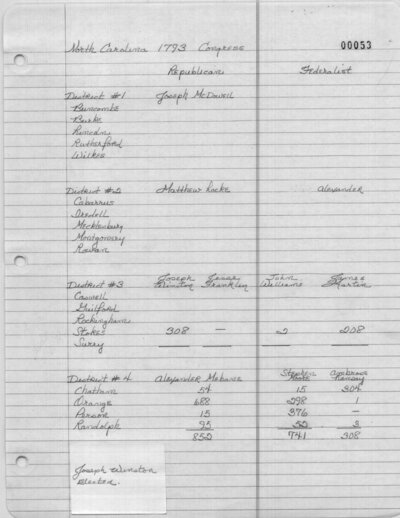 North Carolina 1793 Congress 00053
Republican Federalist
District #1 Joseph McDowell
Buncombe
Burke
Lincoln
Rutherford
Wilkes
District #2 Matthew Locke Alexander
Cabarrus
Iredell
Mecklenburg
Montgomery
Rowan
Joseph Jesse John James
District #3 Winston Franklin Williams Martin
Caswell
Guilford
Rockingham
Stokes 308 — 2 208
Surry
Stephen Ambrose
District #4 Alexander Mebane Moore Ramsey
Chatham 54 15 304
Orange 688 298 1
Person 15 376 —
Randolph 95 52 3
852 741 308
Joseph Winston
Elected.